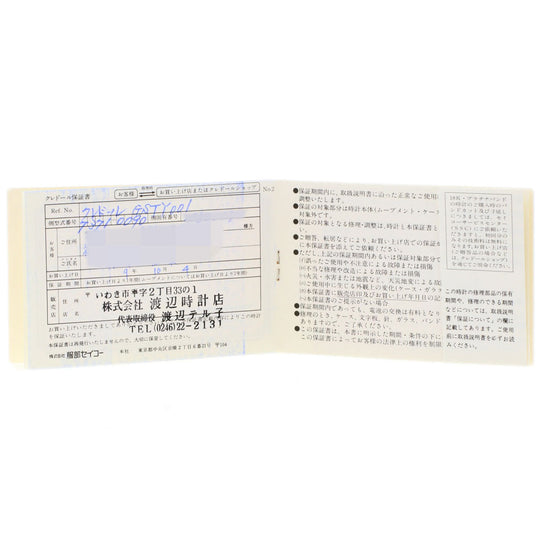 クレドール保証書
お客様
お買い上げ店またはクレドールショップ
No.2
Ref. No.
クレドール GSTY001
側型式番号
機側番号
ご住所
様方
お客様
ご氏名
お買い上げ日
9年 10月 4日
保証期間
お買い上げ日より
販売店
住所
店名
いわき市平字2丁目33の1
株式会社 渡辺時計店
代表取締役 渡辺テル子
TEL(0246)22-2131
本保証書は再発行いたしませんので、大切に保管してください。
株式会社 服部セイコー
本社 東京都中央区京橋2丁目6番21号 〒104
●保証期間内に、取扱説明書に沿った正常なご使用
調整いたします。
●保証の対象部分は時計本体(ムーブメント・ケース
対象外です。
●保証の対象となる修理・調整は、時計と本保証書と
い。
●ご贈答、転居などにより、お買い上げ店での保証を
に本保証書を添えてご依頼ください。
●ただし、上記の保証期間内あるいは保証対象部分で
○誤ったご使用や不注意による故障または損傷
○不当な修理や改造による故障または損傷
○火災・水害または地震など、天災地変による故
○ご使用中に生じる外観上の変化(ケース・ガラス
○本保証書に販売店印及びお買い上げ年月日の記
○本保証書のご提示がない場合
●保証期間内であっても、電池の交換は有料となり
●修理のとき、ケース、文字板、針、ガラス、バンド
ありますので、ご了承ください。
●この保証書は、本書に明示した期間・条件の下に
この保証書によってお客様の法律上の権利を制限
18K・プラチナバンド
の時計のご購入時のバ
ンドカット及び手直し
につきましては、セイ
コーサービスセンター
(SSC)にご依頼く
この時計の修理部品の保有
期間や、修理のできる期間
などについては、取扱説明
書「保証について」の欄に
記載してあります。ご使用
前に取扱説明書を必ずお読
みください。